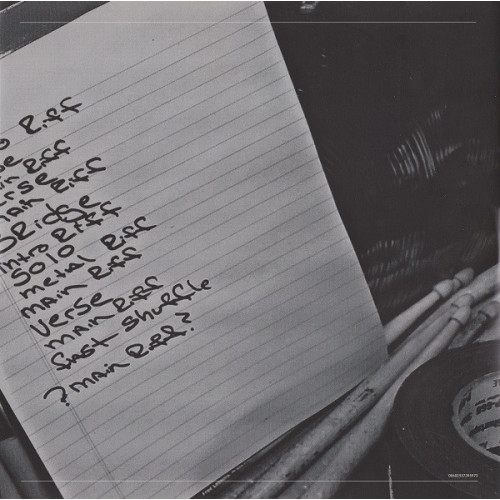 Riff
Riff
main Riff
Bridge
intro Riff
Solo
metal Riff
main Riff
Verse
main Riff
fast shuffle
?main Riff?